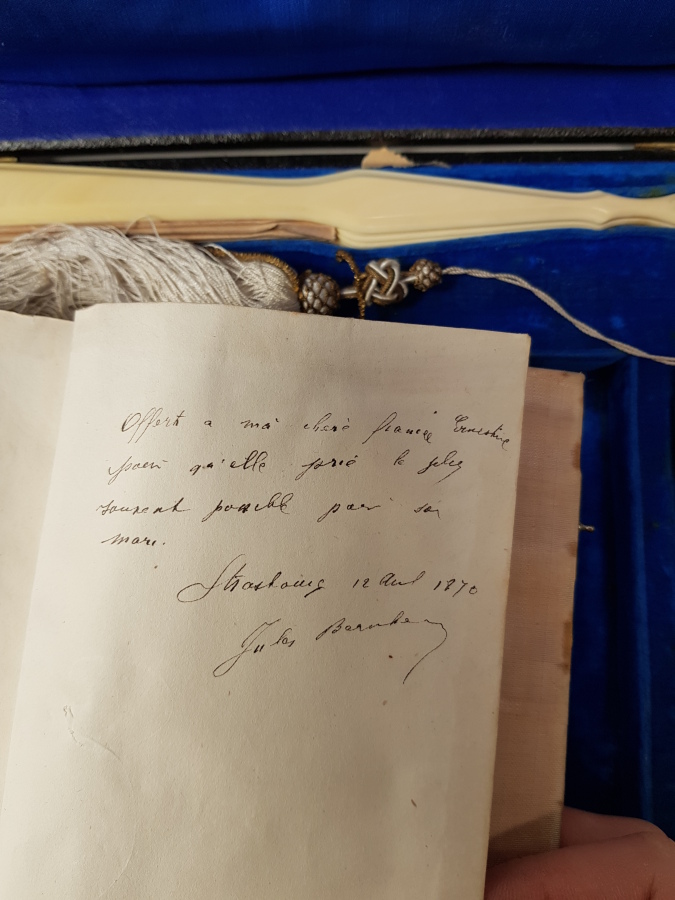 Offert a ma chère fiancée Ernestine
pour qu'elle prie le plus
souvent possible pour son
mari.
Strasbourg 12 Avril 1870
Jules